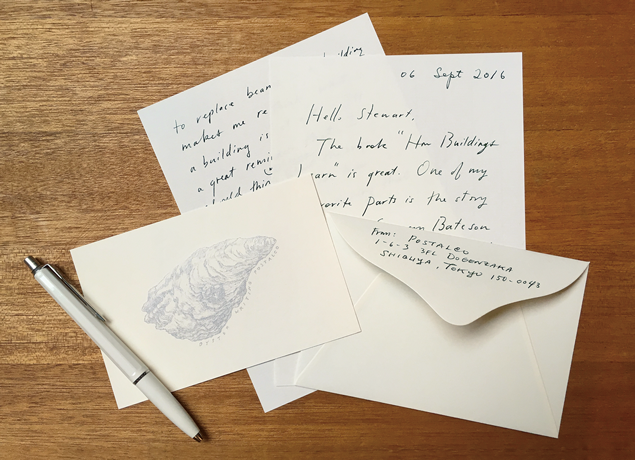 building
to replace bea
makes me re
a building is
a great remi
06 Sept 2016
Hello, Stewart,
The book "How Buildings
earn" is great. One of my
avorite parts is the story
Bateson
From: POSTALCO
1-6-3 3FL DOGENZAKA
SHIBUYA, TOKYO 150-0043